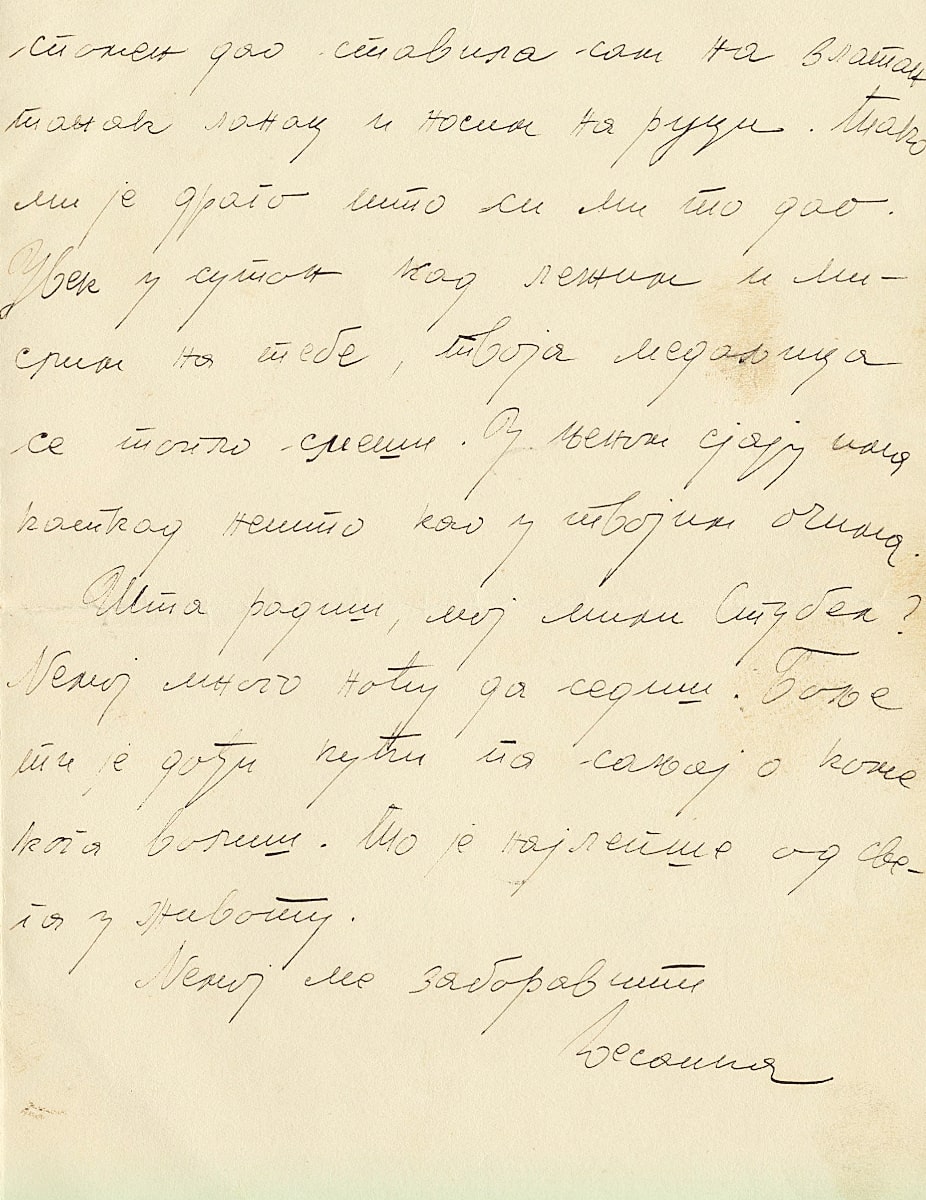 спомен дао ставила сам на златан
танак ланац и носим на руци. Тако
ми је драго што си ми то дао.
Увек у сутон кад лежим и ми-
слим на тебе, твоја медаљица
се топло смеши. У њеном сјају има
каткад нешто као у твојим очима.
Шта радиш, мој мили Стубек?
Немој много ноћу да седиш. Боље
ти је дођи кући па сањај о коме
кога волиш. То је најлепше од све-
га у животу.
Немој ме заборавити